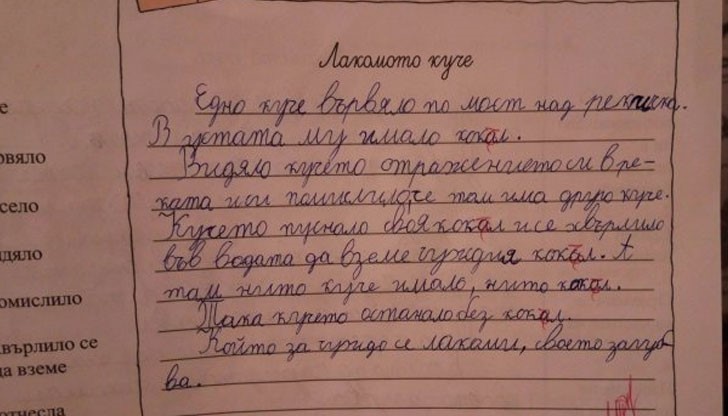 Лакомото куче
е
Едно куче вървяло по мост над рекичка.
В устата му имало кокал.
овяло
Видяло кучето отражението си в ре-
село
ката и си помислило, че там има друго куче.
Кучето пуснало своя кокал и се хвърлило
дяло
във водата да вземе чуждия кокъл. А
омислило
там нито куче имало, нито кокал.
Така кучето останало без кокал.
хвърлило се
Който за чуждо се лакоми, своето загуб
да вземе
ва.
отнесла